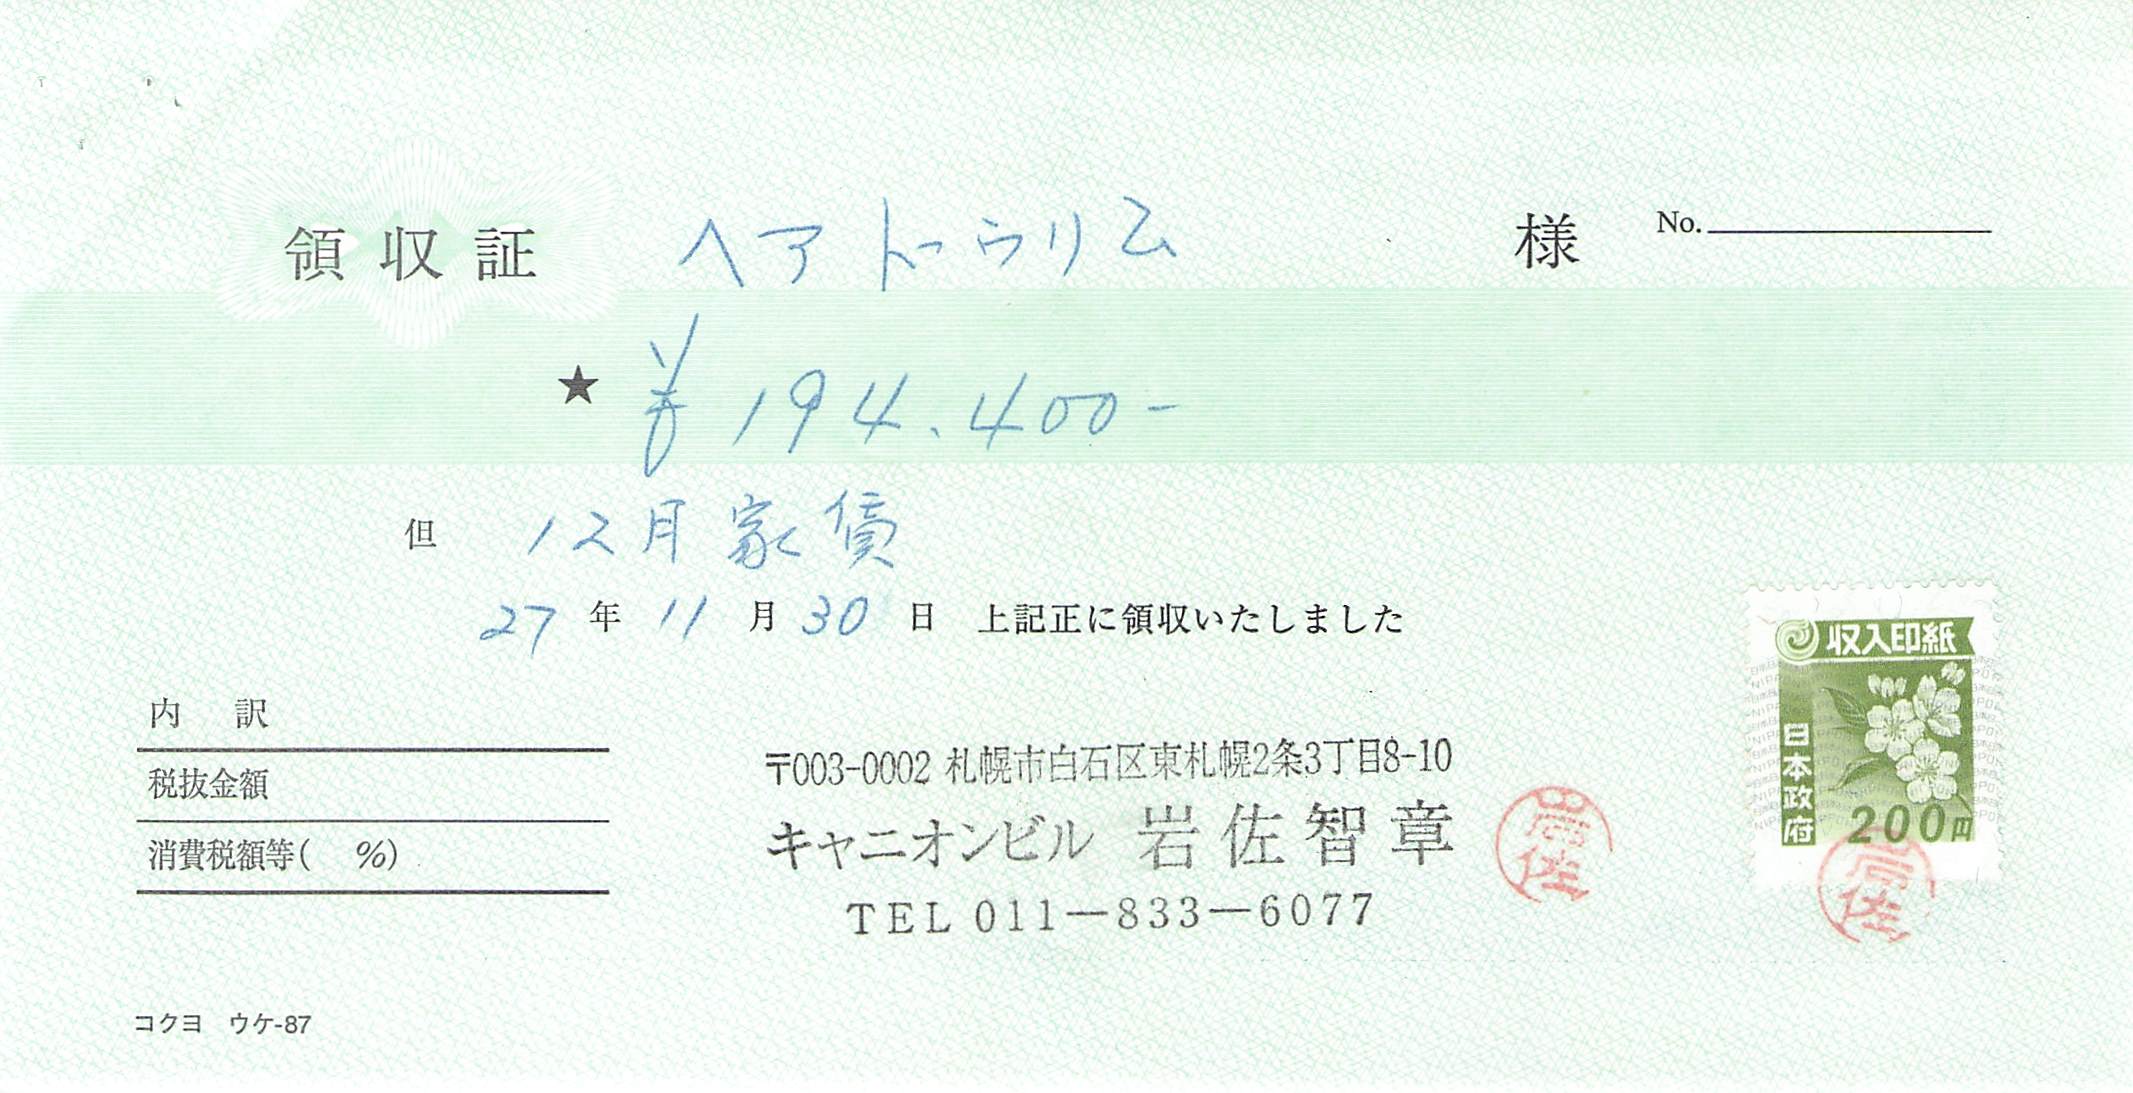 領収証 ヘアトゥリム 様 No.
★ ¥194.400-
但 12月家賃
27年11月30日 上記正に領収いたしました
内訳
税抜金額
消費税額等( %)
〒003-0002 札幌市白石区東札幌2条3丁目8-10
キャニオンビル 岩佐智章
TEL 011-833-6077
岩佐
収入印紙
日本政府
200円
岩佐
コクヨ ウケ-87